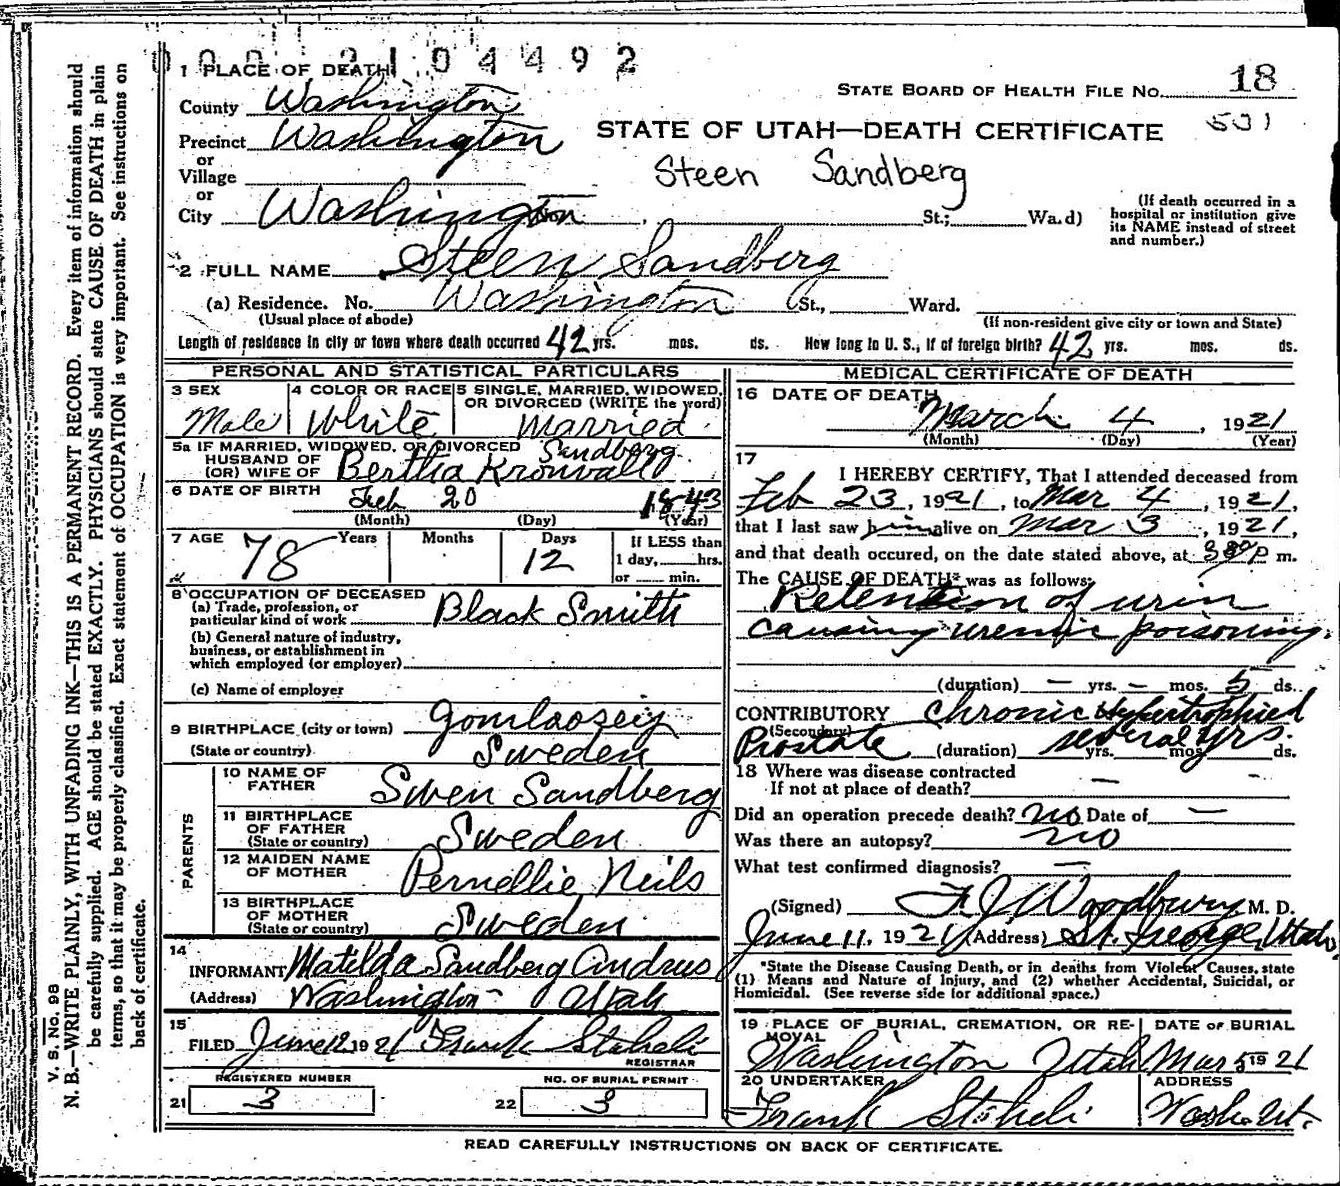 000 2104492
1 PLACE OF DEATH
County Washington
STATE BOARD OF HEALTH FILE NO. 18
Precinct Washington
STATE OF UTAH—DEATH CERTIFICATE 531
or
Village
Steen Sandberg
or
City Washington, St.; Ward)
(If death occurred in a hospital or institution give its NAME instead of street and number.)
2 FULL NAME Steen Sandberg
(a) Residence. No. Washington St., Ward.
(Usual place of abode)
(If non-resident give city or town and State)
Length of residence in city or town where death occurred 42 yrs. mos. ds. How long in U. S., if of foreign birth? 42 yrs. mos. ds.
PERSONAL AND STATISTICAL PARTICULARS
3 SEX
Male
4 COLOR OR RACE
White
5 SINGLE, MARRIED, WIDOWED, OR DIVORCED (WRITE the word)
Married
5a IF MARRIED, WIDOWED, OR DIVORCED
HUSBAND OF
(OR) WIFE OF Bertha Kronvall Sandberg
6 DATE OF BIRTH Feb 20 1843
(Month) (Day) (Year)
7 AGE 78 Years Months 12 Days
If LESS than
1 day, hrs.
or min.
8 OCCUPATION OF DECEASED
(a) Trade, profession, or
particular kind of work Black Smith
(b) General nature of industry,
business, or establishment in
which employed (or employer)
(c) Name of employer
9 BIRTHPLACE (city or town)
(State or country) Sweden
PARENTS
10 NAME OF FATHER Swen Sandberg
11 BIRTHPLACE OF FATHER (State or country) Sweden
12 MAIDEN NAME OF MOTHER Pernellie Neils
13 BIRTHPLACE OF MOTHER (State or country) Sweden
14
INFORMANT Matilda Sandberg Andrus
(Address) Washington - Utah
15
FILED June 12 1921 Frank Staheli
REGISTRAR
REGISTERED NUMBER
21 3
NO. OF BURIAL PERMIT
22 3
MEDICAL CERTIFICATE OF DEATH
16 DATE OF DEATH
March 4, 1921
(Month) (Day) (Year)
17
I HEREBY CERTIFY, That I attended deceased from
Feb 23, 1921, to Mar 4, 1921,
that I last saw him alive on Mar 3, 1921,
and that death occured, on the date stated above, at 3 30 P m.
The CAUSE OF DEATH* was as follows:
Retention of urin
causing uremic poisoning.
(duration) — yrs. — mos. 5 ds.
CONTRIBUTORY Chronic Hypertrophied
(Secondary)
Prostate (duration) several yrs. mos. ds.
18 Where was disease contracted
If not at place of death? —
Did an operation precede death? no Date of —
Was there an autopsy? no
What test confirmed diagnosis? —
(Signed) F J Woodbury M. D.
June 11, 1921 (Address) St. George, Utah
*State the Disease Causing Death, or in deaths from Violent Causes, state
(1) Means and Nature of Injury, and (2) whether Accidental, Suicidal, or
Homicidal. (See reverse side for additional space.)
19 PLACE OF BURIAL, CREMATION, OR REMOVAL
Washington Utah
DATE OF BURIAL
Mar 5 1921
20 UNDERTAKER
Frank Staheli
ADDRESS
Wash. Ut.
READ CAREFULLY INSTRUCTIONS ON BACK OF CERTIFICATE.
V. S. NO. 98
N. B.—WRITE PLAINLY, WITH UNFADING INK—THIS IS A PERMANENT RECORD. Every item of information should
be carefully supplied. AGE should be stated EXACTLY. PHYSICIANS should state CAUSE OF DEATH in plain
terms, so that it may be properly classified. Exact statement of OCCUPATION is very important. See instructions on
back of certificate.